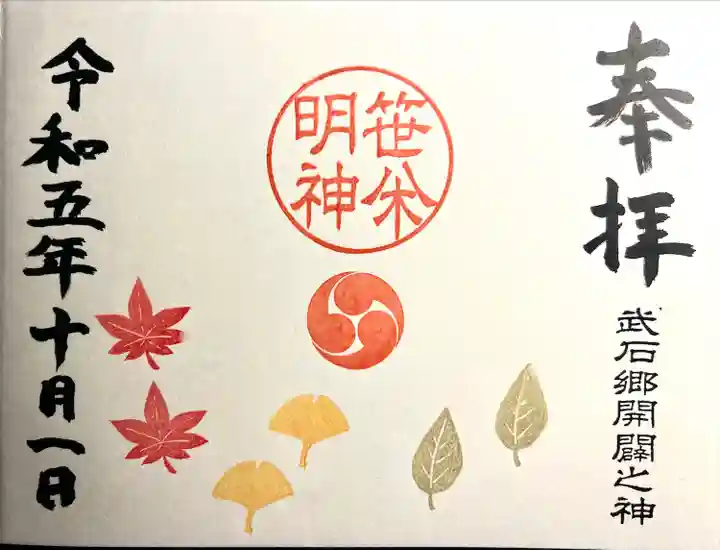 奉拝
武石郷開闢之神
笹
明神
令和五年十月一日